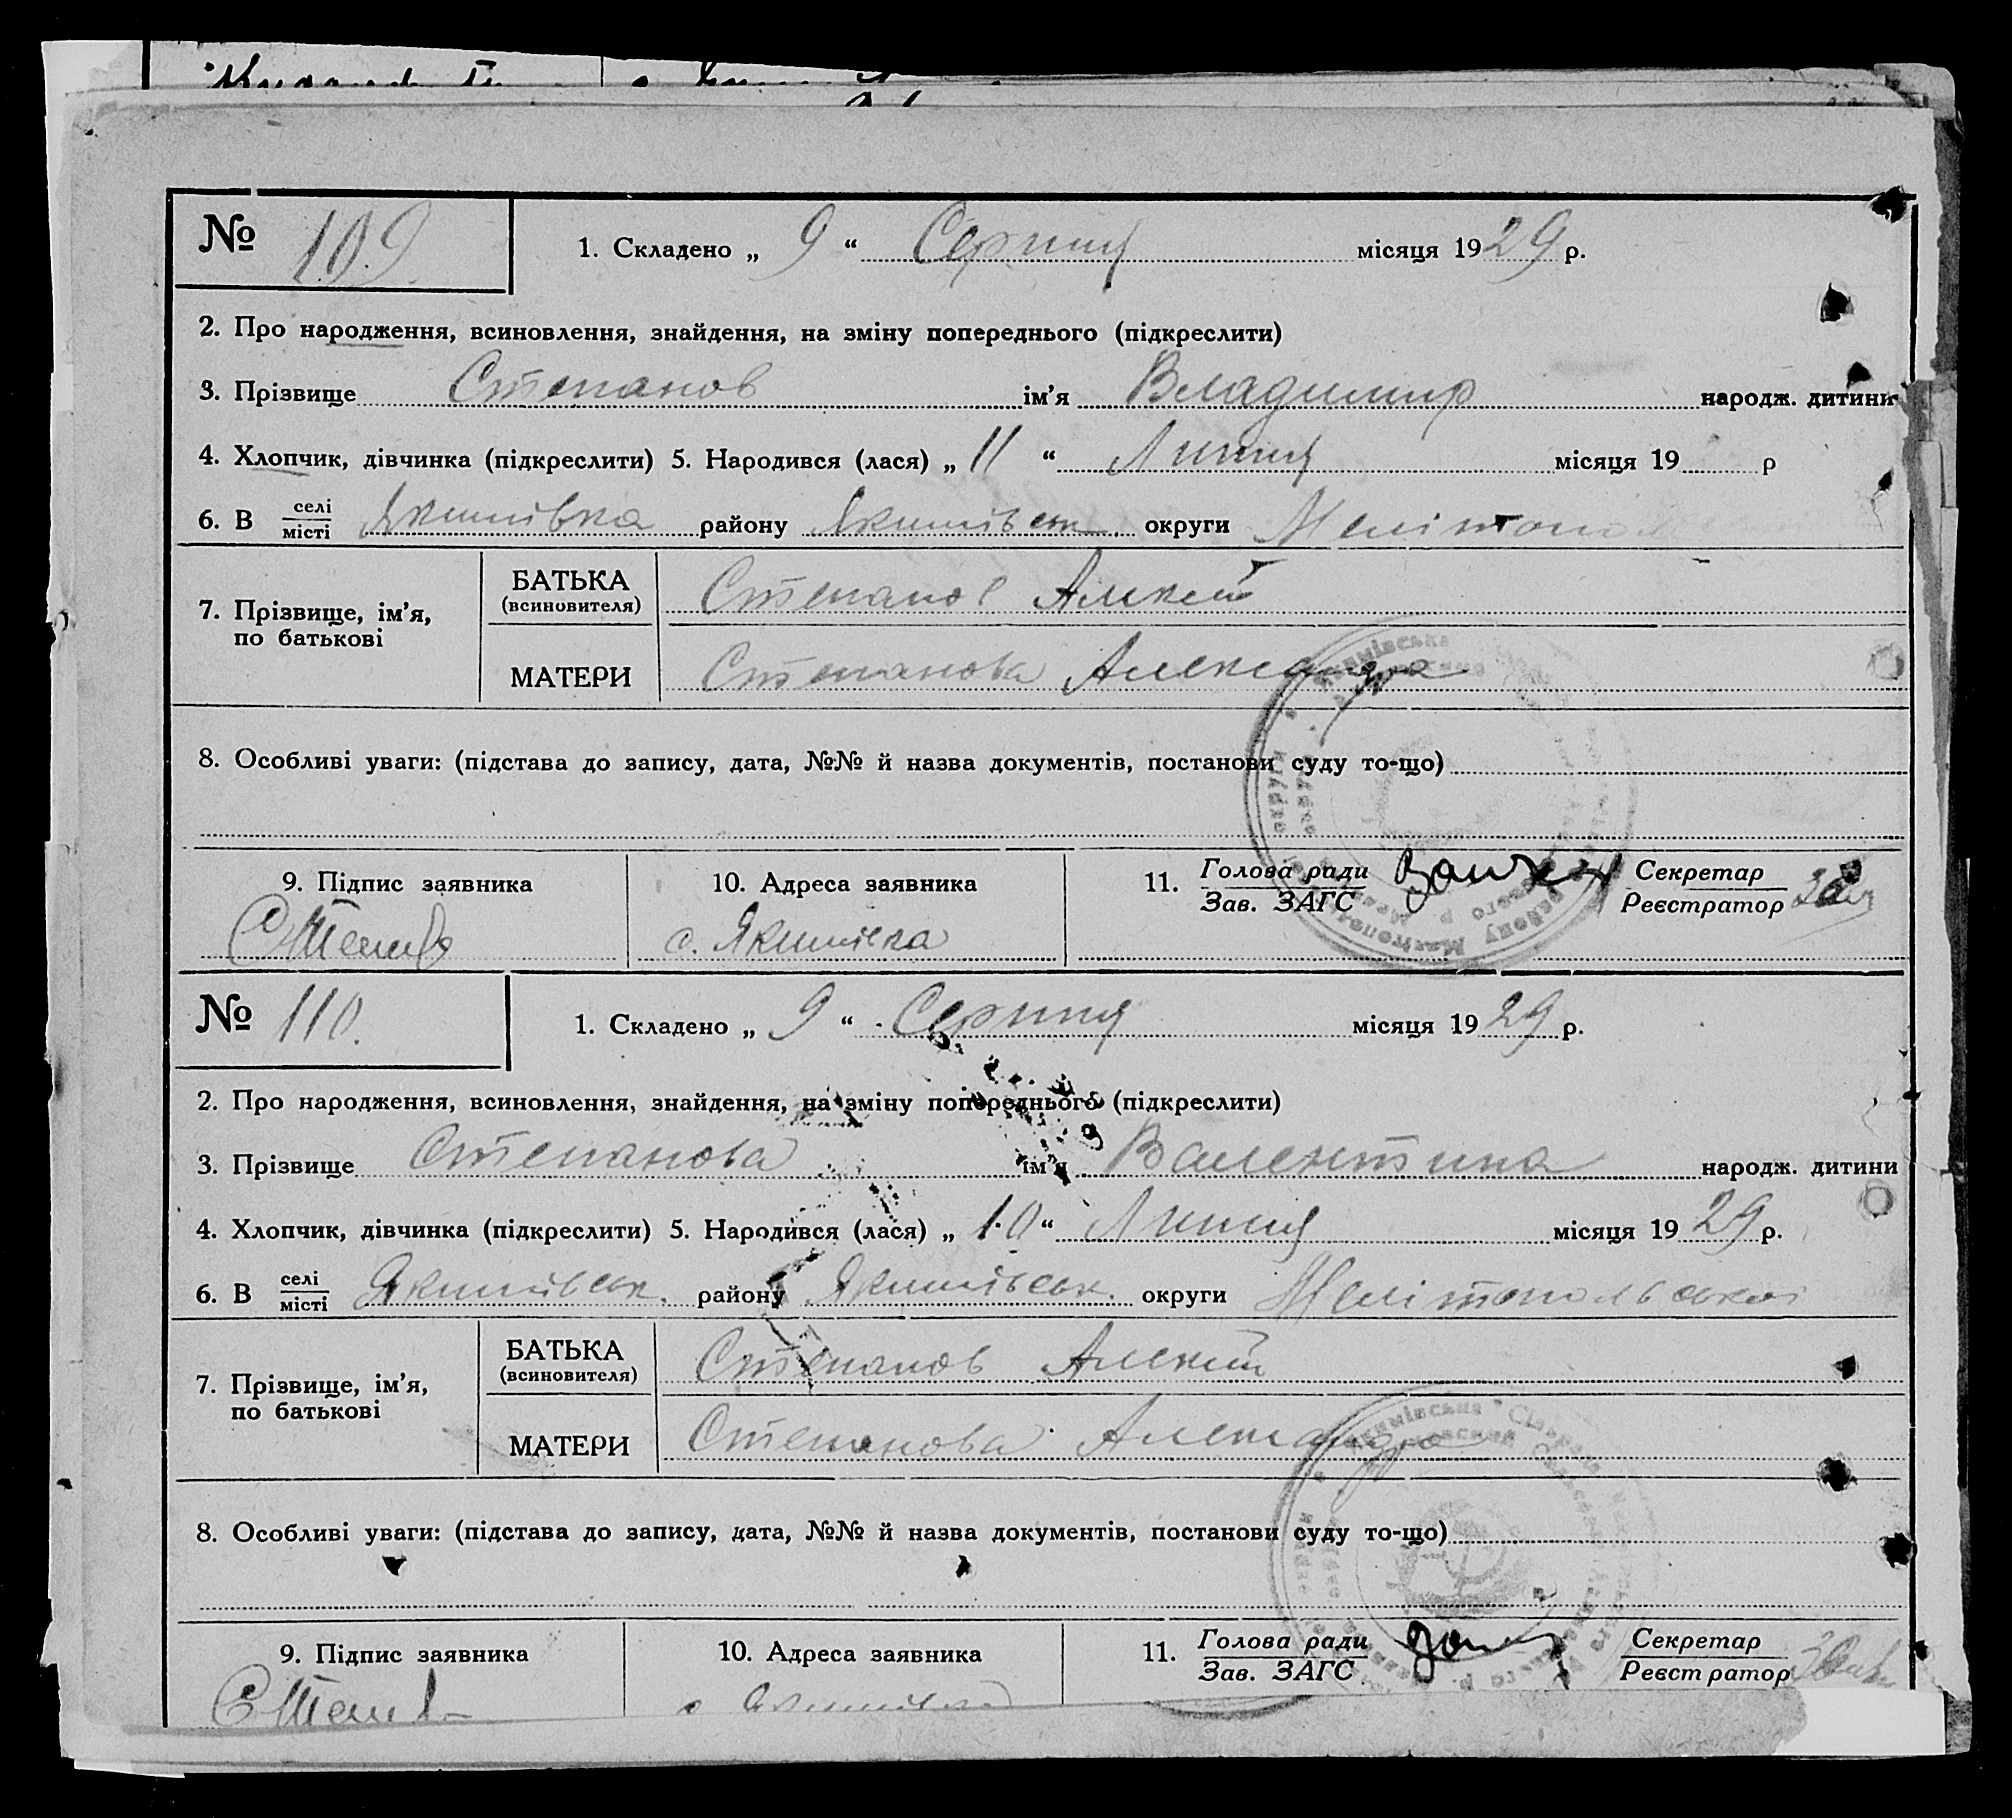 № 109 1. Складено „ 9 “ Серпня місяця 1929 р.
2. Про народження, всиновлення, знайдення, на зміну попереднього (підкреслити)
3. Прізвище Степанов ім’я Владимир народж. дитини
4. Хлопчик, дівчинка (підкреслити) 5. Народився (лася) „ 11 “ Липня місяця 19 р
6. В селі/місті Якимівка району Якимівськ. округи Мелітопол
7. Прізвище, ім’я, по батькові
БАТЬКА (всиновителя) Степанов Алексій
МАТЕРИ Степанова Александра
8. Особливі уваги: (підстава до запису, дата, №№ й назва документів, постанови суду то-що)
9. Підпис заявника 10. Адреса заявника 11. Голова ради/Зав. ЗАГС Секретар/Реєстратор
с. Якимівка
№ 110. 1. Складено „ 9 “ Серпня місяця 1929 р.
2. Про народження, всиновлення, знайдення, на зміну попереднього (підкреслити)
3. Прізвище Степанова ім’я Валентина народж. дитини
4. Хлопчик, дівчинка (підкреслити) 5. Народився (лася) „ 10 “ Липня місяця 1929 р.
6. В селі/місті Якимівськ. району Якимівськ. округи Мелітопольської
7. Прізвище, ім’я, по батькові
БАТЬКА (всиновителя) Степанов Алексій
МАТЕРИ Степанова Александра
8. Особливі уваги: (підстава до запису, дата, №№ й назва документів, постанови суду то-що)
9. Підпис заявника 10. Адреса заявника 11. Голова ради/Зав. ЗАГС Секретар/Реєстратор
с Якимівка